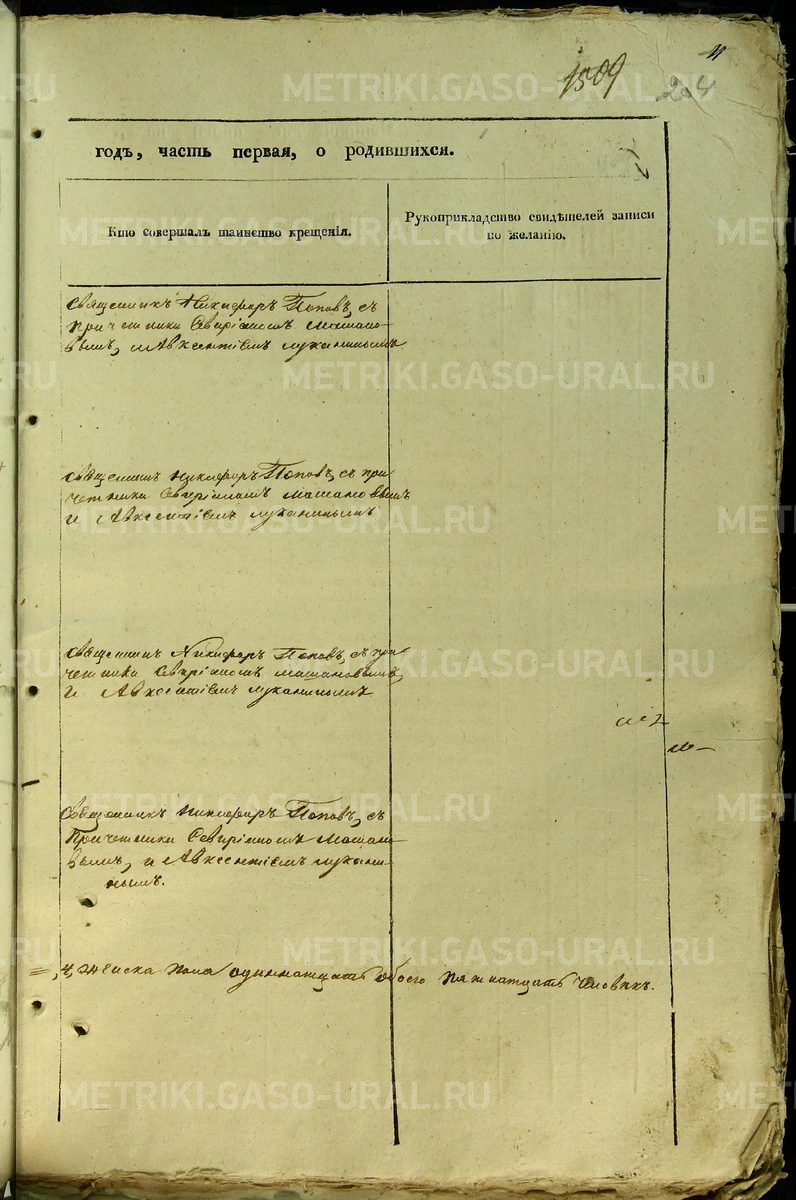 11
1509
204
годъ, часть первая, о родившихся.
Кто совершалъ таинство крещенія.
Рукоприкладство свидѣтелей записи
по желанію.
Священникъ Никифоръ Поповъ, съ
причетники Севиріаномъ Машано-
вымъ, и Авксентіемъ Луканинымъ
Священникъ Никифоръ Поповъ, съ при
четники Севиріаномъ Машановымъ
и Авксентіемъ Луканинымъ
Священникъ Никифоръ Поповъ, съ при
четники Севиріаномъ Машановымъ,
и Авксентіемъ Луканинымъ
Священникъ Никифоръ Поповъ, съ
Причетники Севиріаномъ Машано-
вымъ, и Авксентіемъ Лукани-
нымъ.
женска пола одиннатцать обоего пятнатцать человѣкъ.
METRIKI.GASO-URAL.RU